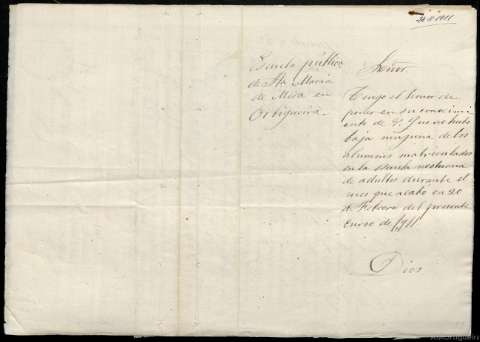 Escuela pública
de Sta María
de Mera en
Ortigueira.
Señor
Tengo el honor de
poner en su conocimi
ento de V. que no hubo
baja ninguna de los
alumnos matriculados
en la escuela nocturna
de adultos durante el
mes que acabó en 20
de Febrero del presente
curso de 1911
Dios